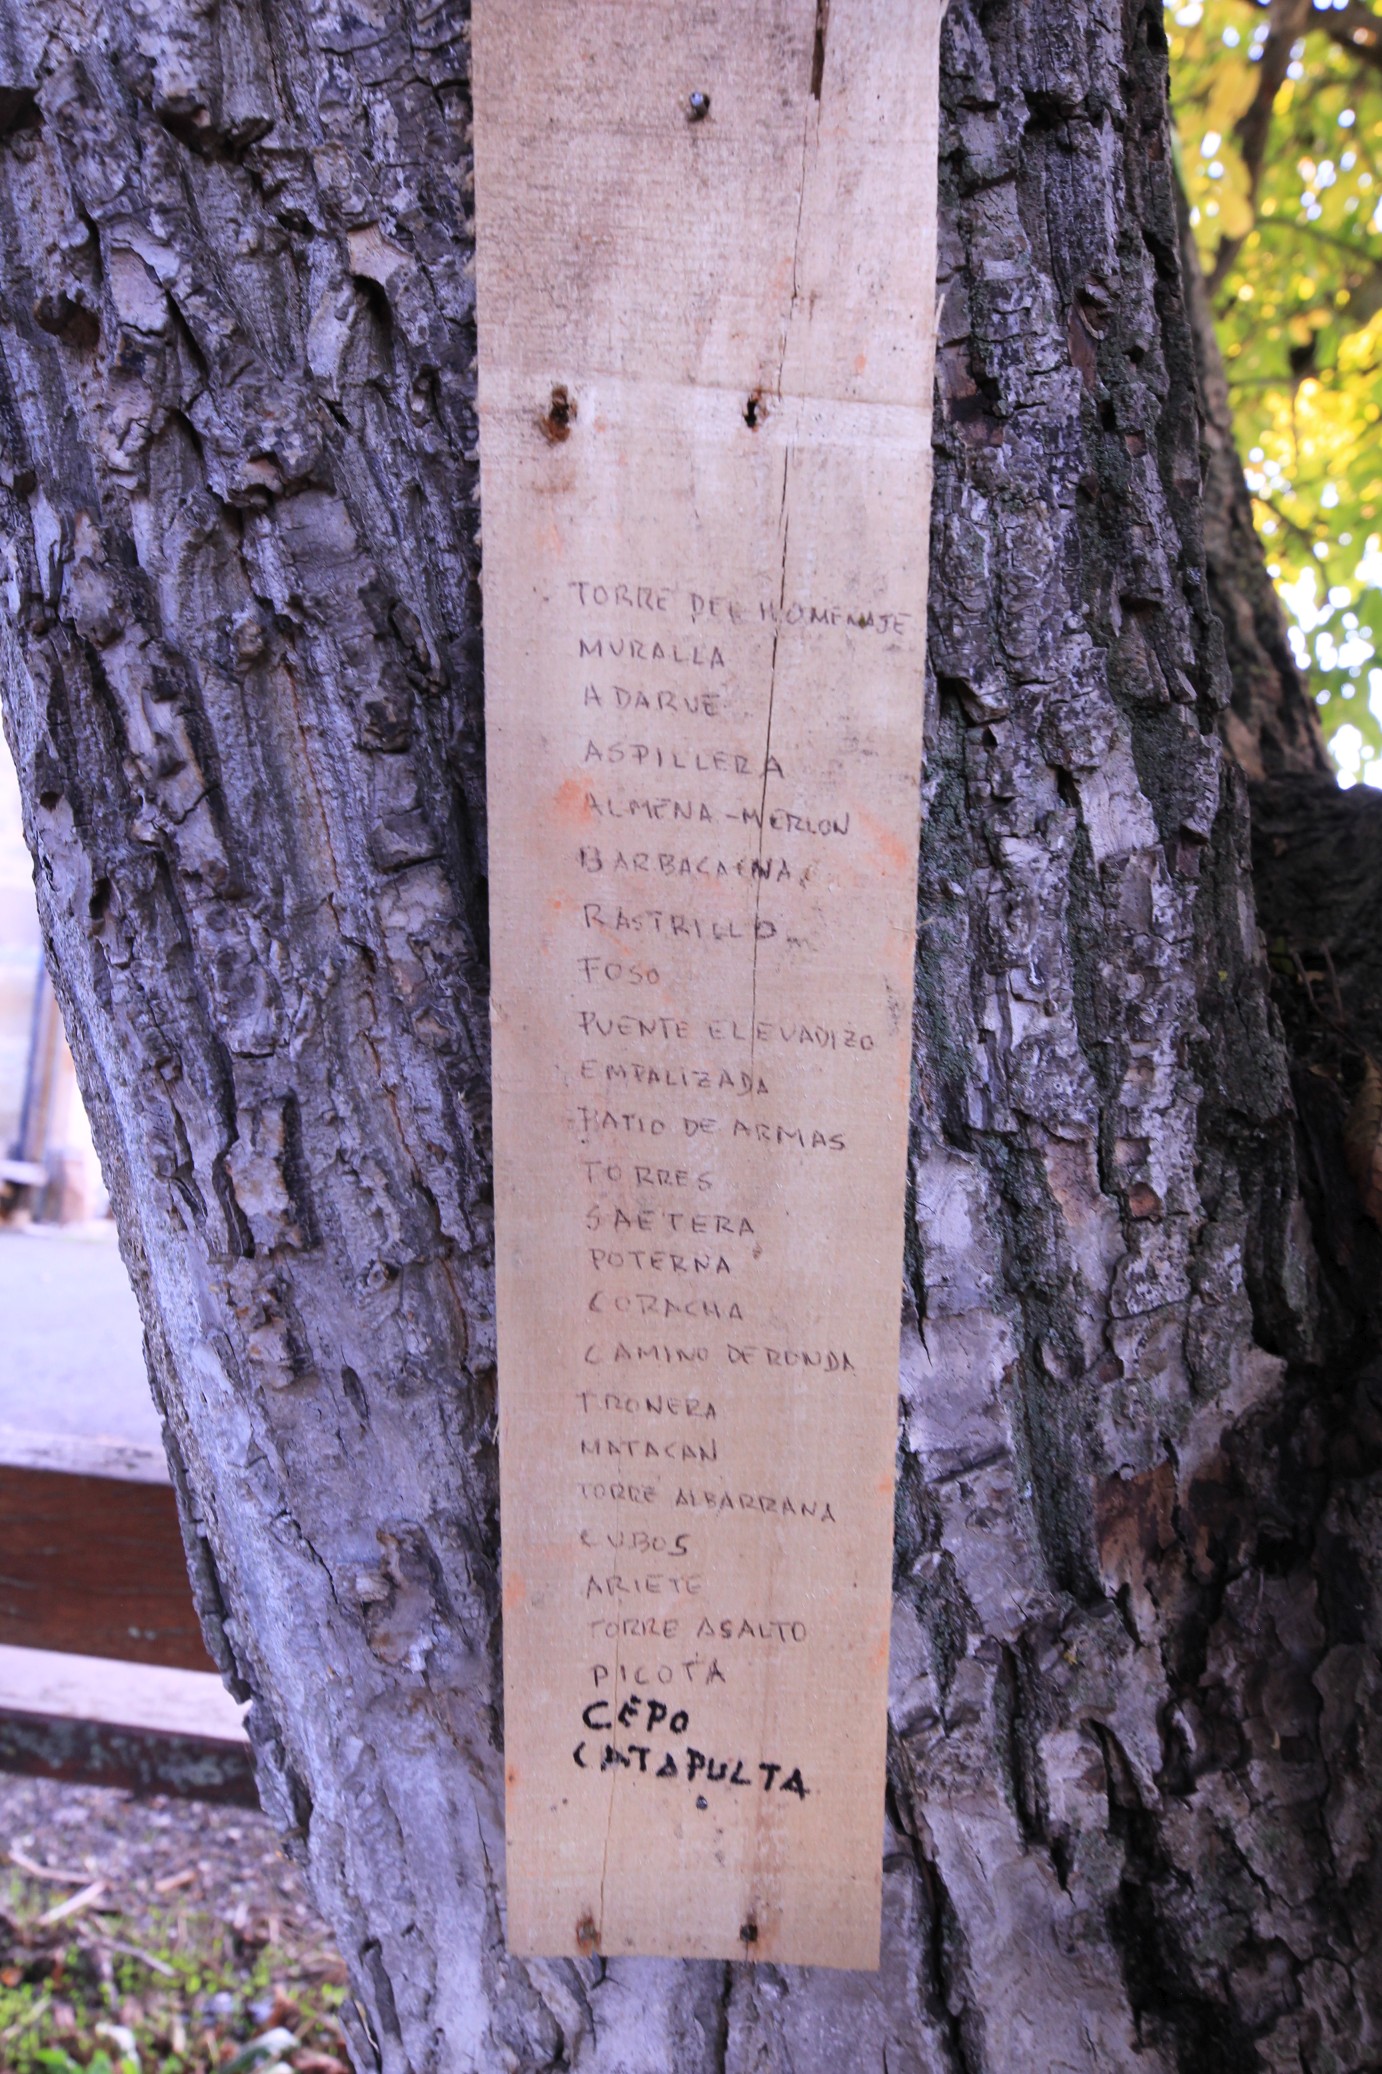 TORRE DEL HOMENAJE
MURALLA
ADARVE
ASPILLERA
ALMENA-MERLON
BARBACANA
RASTRILLO
FOSO
PUENTE ELEVADIZO
EMPALIZADA
PATIO DE ARMAS
TORRES
SAETERA
POTERNA
CORACHA
CAMINO DE RONDA
TRONERA
MATACAN
TORRE ALBARRANA
CUBOS
ARIETE
TORRE ASALTO
PICOTA
CEPO
CATAPULTA